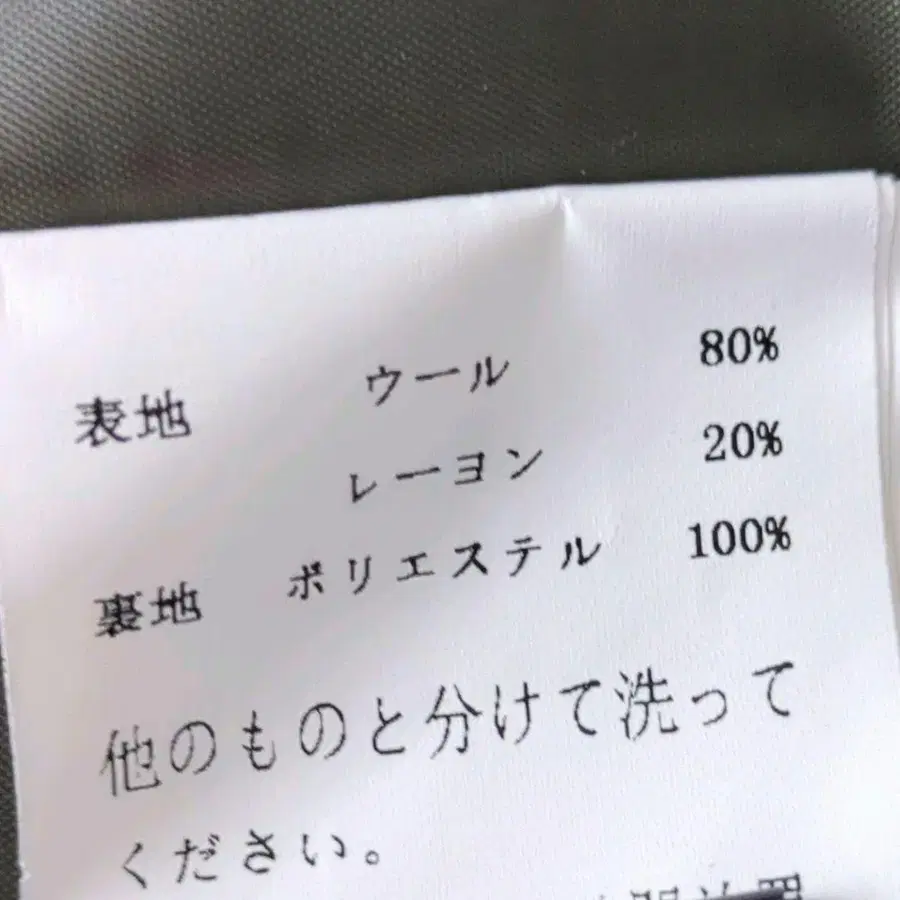 表地 ウール 80%
レーヨン 20%
裏地 ポリエステル 100%
他のものと分けて洗って
ください。